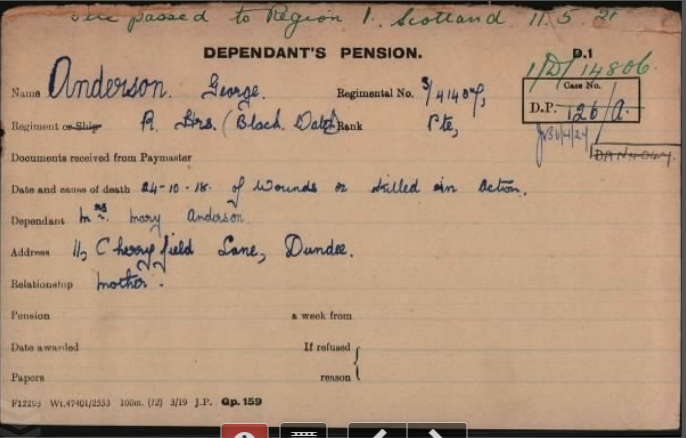 File passed to Region 1. Scotland 11.5.21
DEPENDANT'S PENSION.
D.1
1/D/14806.
Name Anderson. George. Regimental No. S/41407,
Case No.
D.P. 126/A.
Regiment or Ship R. Hrs. (Black Watch) Rank Pte,
Documents received from Paymaster
Date and cause of death 24-10-18. of Wounds or killed in Action.
Dependant Mrs. Mary Anderson
Address 11, Cherryfield Lane, Dundee.
Relationship Mother.
Pension a week from
Date awarded If refused
Papers reason
F12293 Wt.47401/2553 100m. (72) 3/19 J.P. Gp. 159